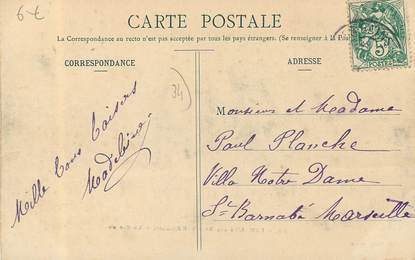 6€
CARTE POSTALE
La Correspondance au recto n'est pas acceptée par tous les pays étrangers. (Se renseigner à la Poste)
CORRESPONDANCE
ADRESSE
34
Mille bons baisers
Madeleine
Monsieur et Madame
Paul Planche
Villa Notre Dame
St Barnabé Marseille
5c
POSTES